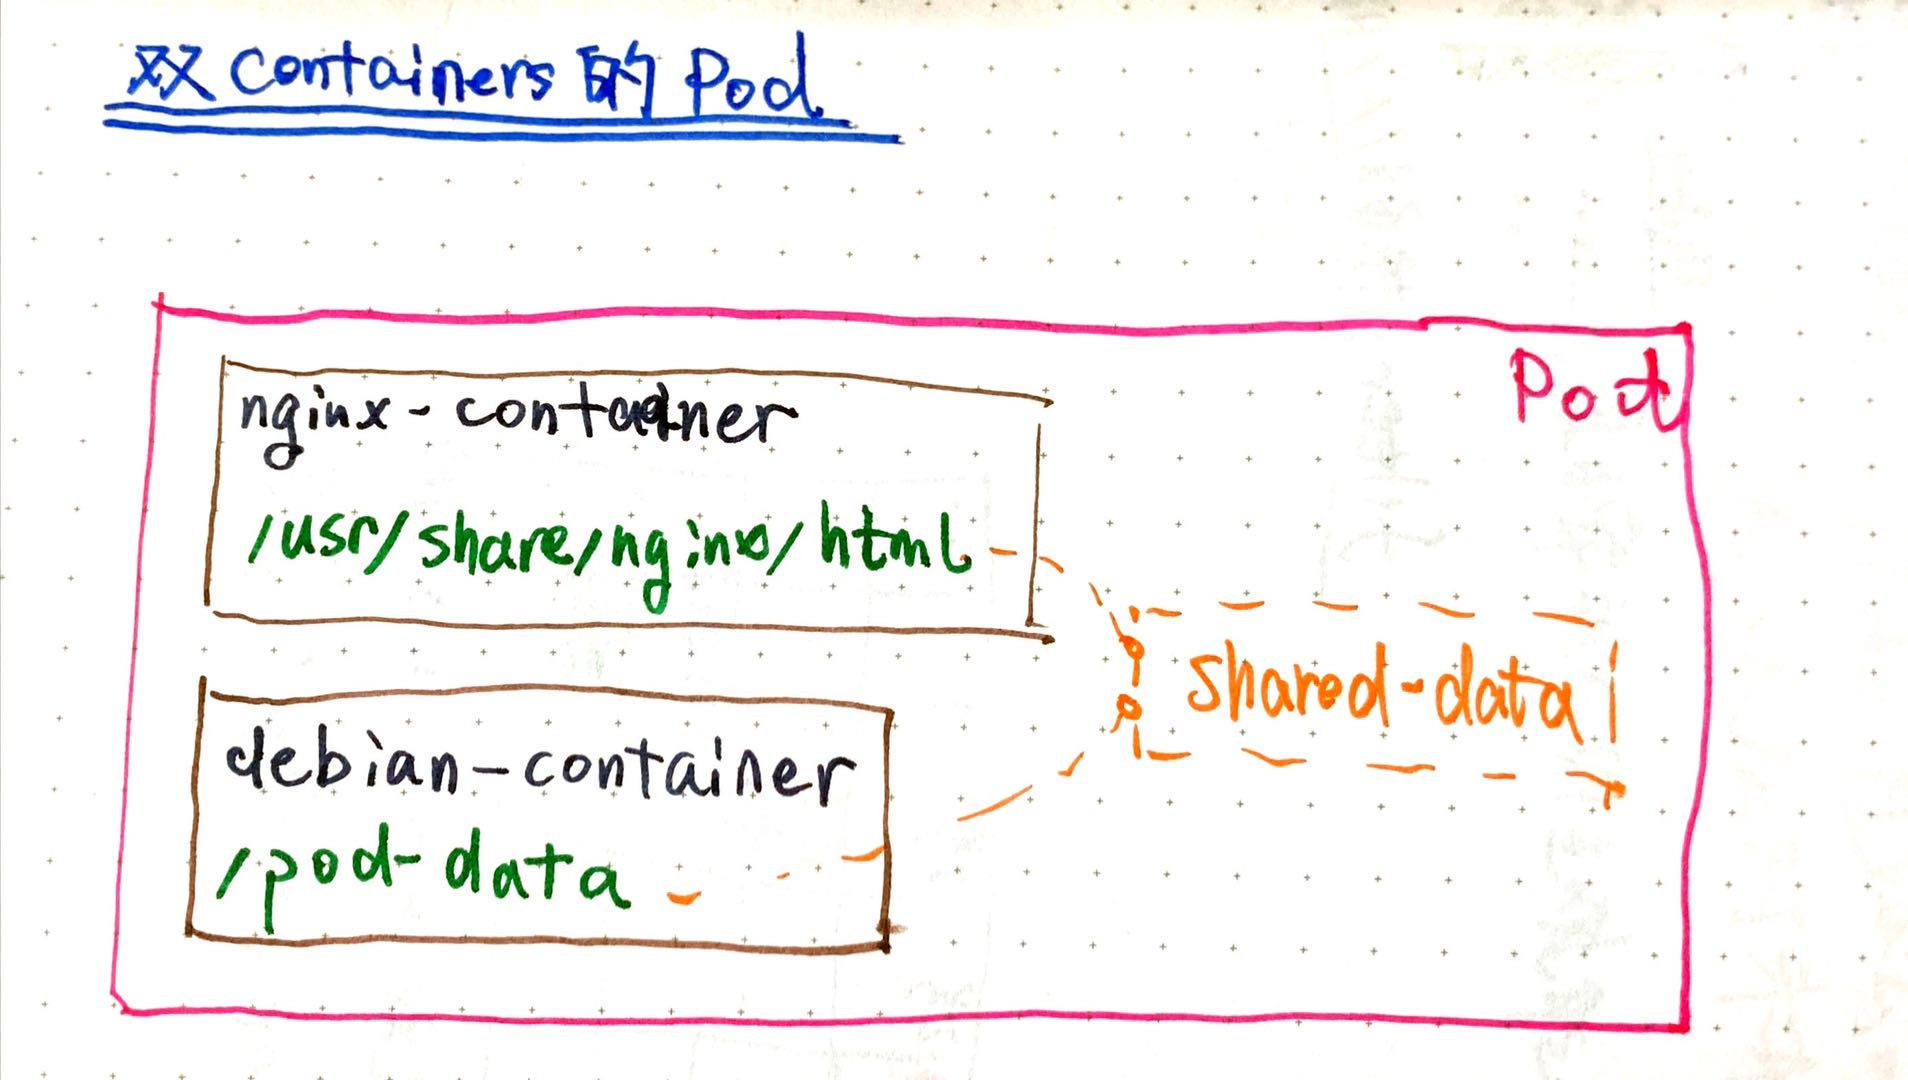 双 Containers 的 Pod
Pod
nginx-container
/usr/share/nginx/html
shared-data
debian-container
/pod-data